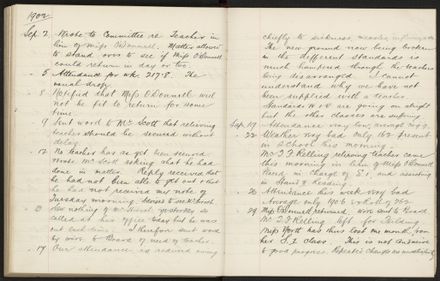 1902
Sep. 2 Wrote to Committee re Teacher in
lieu of Miss O'Donnell. Matter allowed
to stand over to see if Miss O'Donnell
could return in day or two
5 Attendance for wk. 217.8. The
usual drop.
8 Notified that Miss O'Donnell will
not be fit to return for some
time.
9 Sent word to Mr Scott that relieving
teacher should be secured without
delay
12 No teacher has as yet been secured
Wrote Mr Scott asking what he had
done in matter. Reply received that
he had not been able to get and that
he had not received my note of
Tuesday morning.
nothing of Mr Scott yesterday so
called at his office today but he was
out each time. I therefore sent word
by wire to Board of need of teacher.
19 Our attendance is reduced owing
chiefly to sickness, measles,
The new ground now being broken
in the different standards is
much hampered through the teachers
being disarranged. I cannot
understand why we have not
been supplied with a teacher
Standards are going on alright
but the other classes are suffering
Sep. 19 Attendance very low average
22 Weather very bad only 162 present
in School this morning.
Mr T F Kelling relieving teacher came
this morning in lieu of Miss O'Donnell
Placed in charge of S 1, and assisting
in Stand 2 Reading.
26 Attendance this week very bad
Average only 190.6 which of 262
29 Miss O'Donnell returned. Wire sent to Board
Mr T F Kelling left for Feilding
Miss North has thus lost one month from
her S.2 class. This is not conducive
to good progress. Repeated changes are unsettling